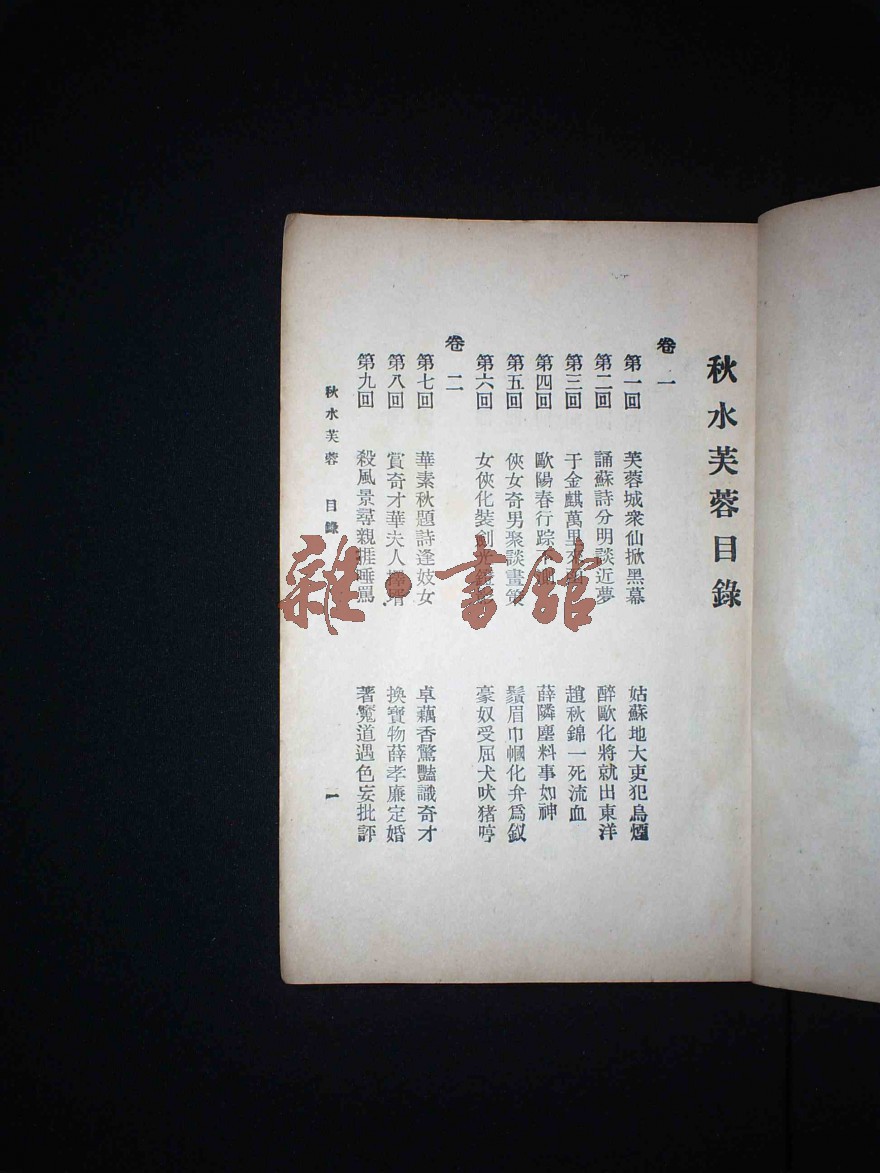 秋水芙蓉目錄
卷一
第一回 芙蓉城衆仙掀黑幕 姑蘇地大吏犯烏煙
第二回 誦蘇詩分明談近夢 醉歐化將就出東洋
第三回 于金麒萬里來 趙秋錦一死流血
第四回 歐陽春行踪不測 薛隣塵料事如神
第五回 俠女奇男聚談畫策 鬚眉巾幗化弁爲釵
第六回 女俠化裝劍光 豪奴受屈犬吠猪哼
卷二
第七回 華素秋題詩逢妓女 卓藕香驚豔識奇才
第八回 賞奇才華夫人擇壻 換寶物薛孝廉定婚
第九回 殺風景尋親捱唾罵 著魔道遇色妄批評
秋水芙蓉 目錄 一
雜·書館